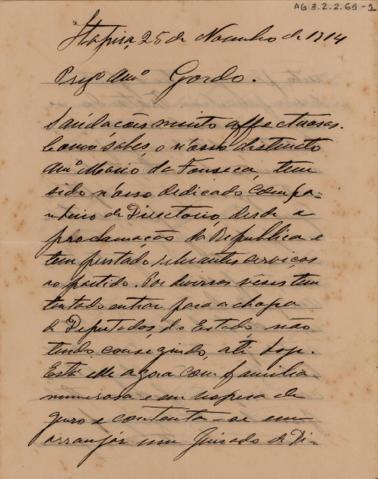 AG 3.2.2.69-1
Itapira 25 de Novembro de 1914
Presº Amº Gordo.
Saudações muito affectuosas.
Como sabes, o nosso distincto
Amº Mario da Fonseca, tem
sido nosso dedicado compa-
nheiro de Directorio, desde a
proclamação da Republica e
tem prestado relevantes serviços
ao partido. Por diversas vezes tem
tentado entrar para a chapa
de Deputados do Estado não
tendo conseguido, até hoje.
Está elle agora com familia
numerosa e em vespera de
e contenta-se em
arranjar um Juizado de Di-